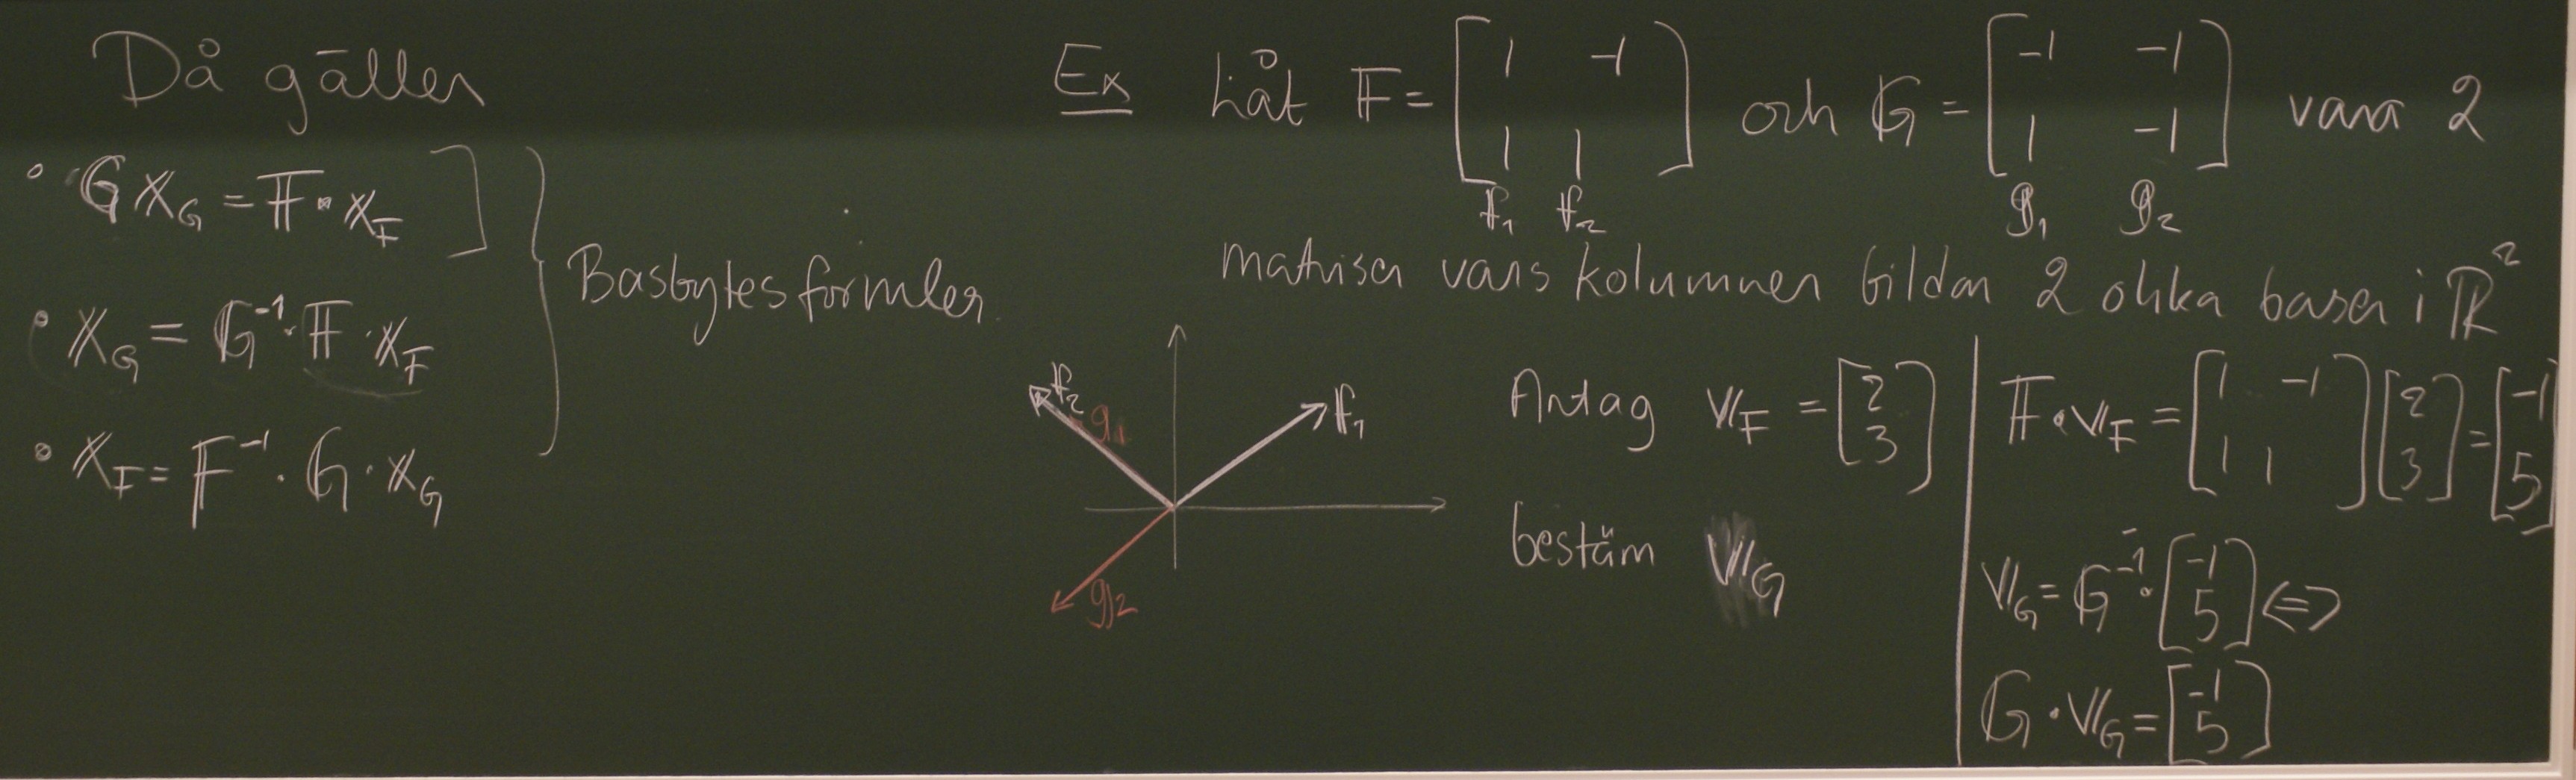 Då gäller
• G x_G = F • x_F
• x_G = G⁻¹ · F · x_F
• x_F = F⁻¹ · G · x_G
Basbytesformler
Ex Låt F = [1 -1; 1 1] och G = [-1 -1; 1 -1] vara 2
f₁ f₂ g₁ g₂
matriser vars kolumner bildar 2 olika baser i R²
f₂ g₁ f₁
g₂
Antag v_F = [2; 3]
bestäm v_G
F · v_F = [1 -1; 1 1] [2; 3] = [-1; 5]
v_G = G⁻¹ · [-1; 5] ⇔
G · v_G = [-1; 5]